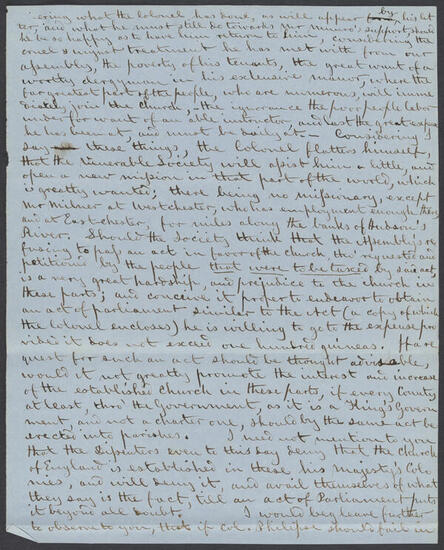 ering what the Colonel has done, as will appear by his let
ter, and what he must still do towards mr munro's support, should
he be so happy as to have him return to him, considering the
cruel & unjust treatment he has met with from an
assembly, the poverty of his tenants, the great want of a
worthy clergyman in his extensive manor, where the
far greatest part of the people, who are numerous, will imme
diately join the church, the ignorance the poor people labor
under for want of an able instructor, and last the great expense
he has been at, and must be daily at — Considering I
say these things, the Colonel flatters himself,
that the Venerable Society will assist him a little, and
open a new mission in that part of the world, which
is greatly wanted; there being no missionary, except
Mr Milner at Westchester, who has employment enough there,
and at Eastchester, for miles along the banks of Hudson's
River. Should the Society think that the Assembly's re
fusing to pass an act in favor of the church, tho' requested and
petitioned by the people that were to be taxed by said act,
is a very great hardship, and prejudice to the church in
these parts; and conceive it proper to endeavor to obtain
an act of parliament similar to the Act (a copy of which
the Colonel encloses) he is willing to go to the expense pro
vided it does not exceed one hundred guineas. If a re
quest for such an act should be thought advisable,
would it not greatly promote the interest and increase
of the established church in these parts, if every County
at least, thro the Government, as it is a King's Govern
ment, and not a charter one, should by the same act be
erected into parishes. I need not mention to you
that the Dissenters even to this day deny that the church
of England is established in these his majesty's Colo
nies, and will deny it, and avail themselves of what
they say is the fact, till an act of Parliament puts
it beyond all doubt. I would beg leave further
to observe to you, that if Col. Philipse should fail in